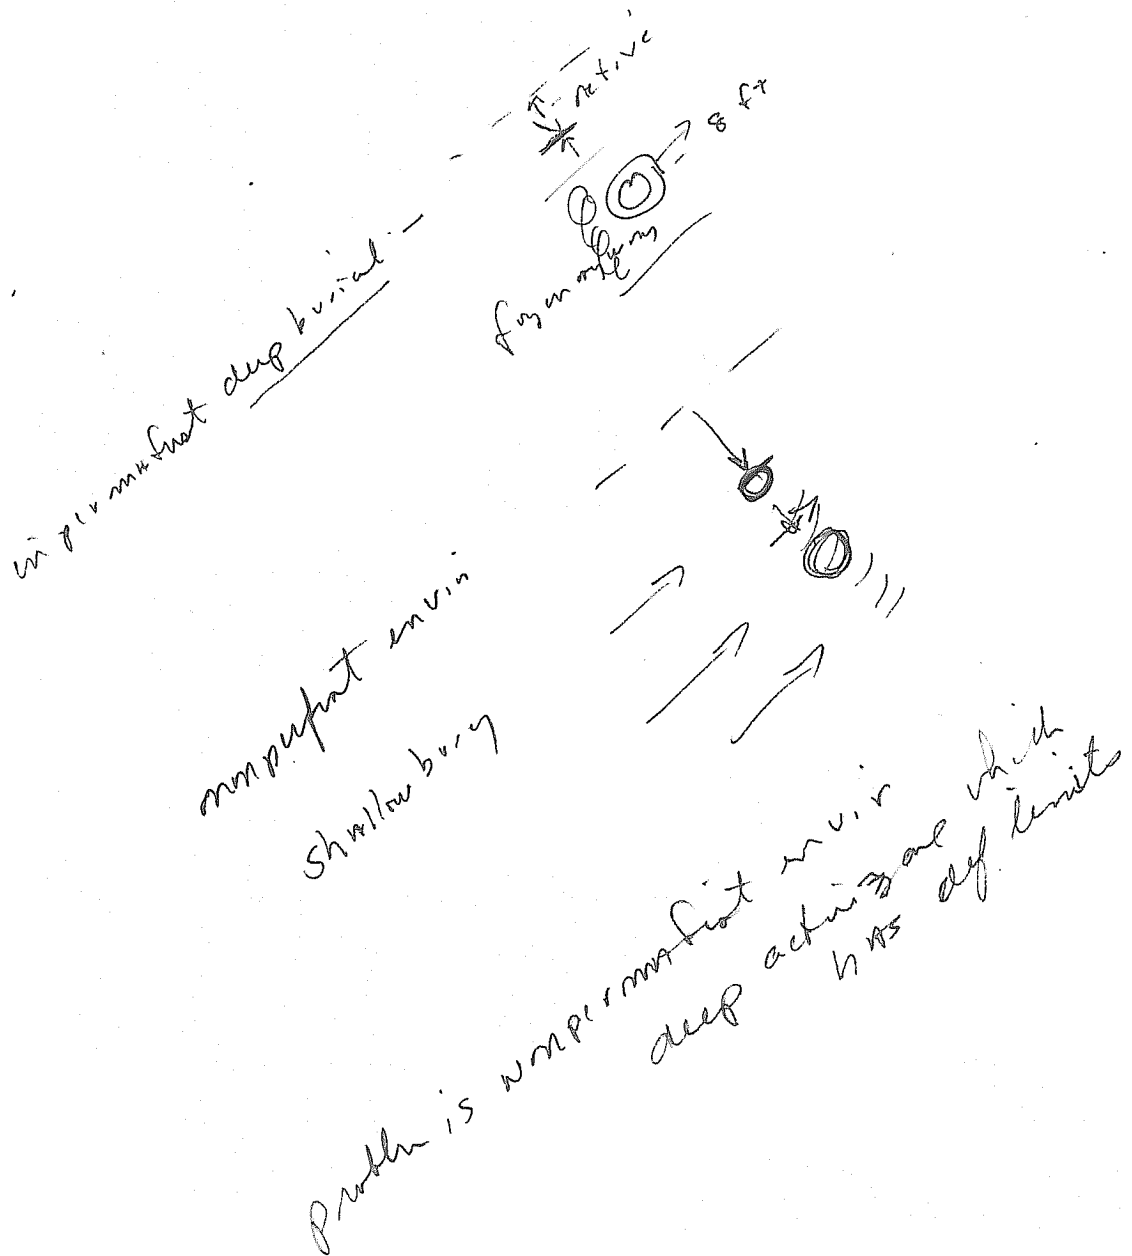 active
8 ft
in permafrost deep burial
frozen
nonpufrost envir
shallow bury
problem is nonpermafrost envir
deep active zone which
has def. limits